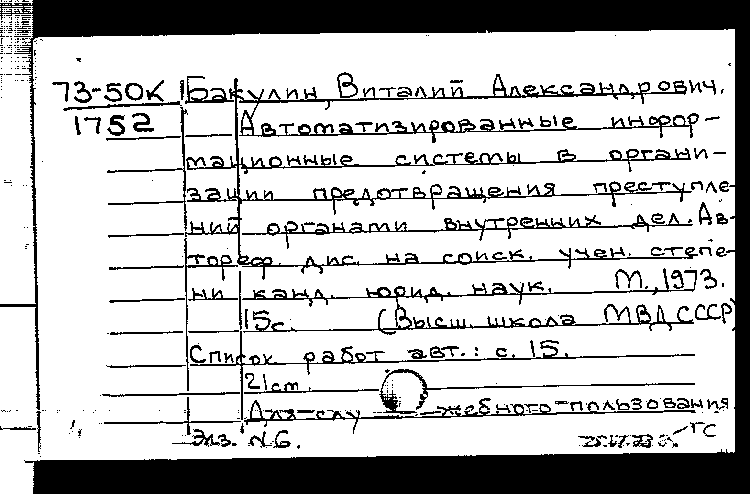 73-50К Бакулин, Виталий Александрович.
1752 Автоматизированные инфор-
мационные системы в органи-
зации предотвращения преступле-
ний органами внутренних дел. Ав-
тореф. дис. на соиск. учен. степе-
ни канд. юрид. наук. М., 1973.
15с. (Высш. школа МВД СССР)
Список работ авт.: с. 15.
21см.
Для служебного пользования
Экз. N6. ГС